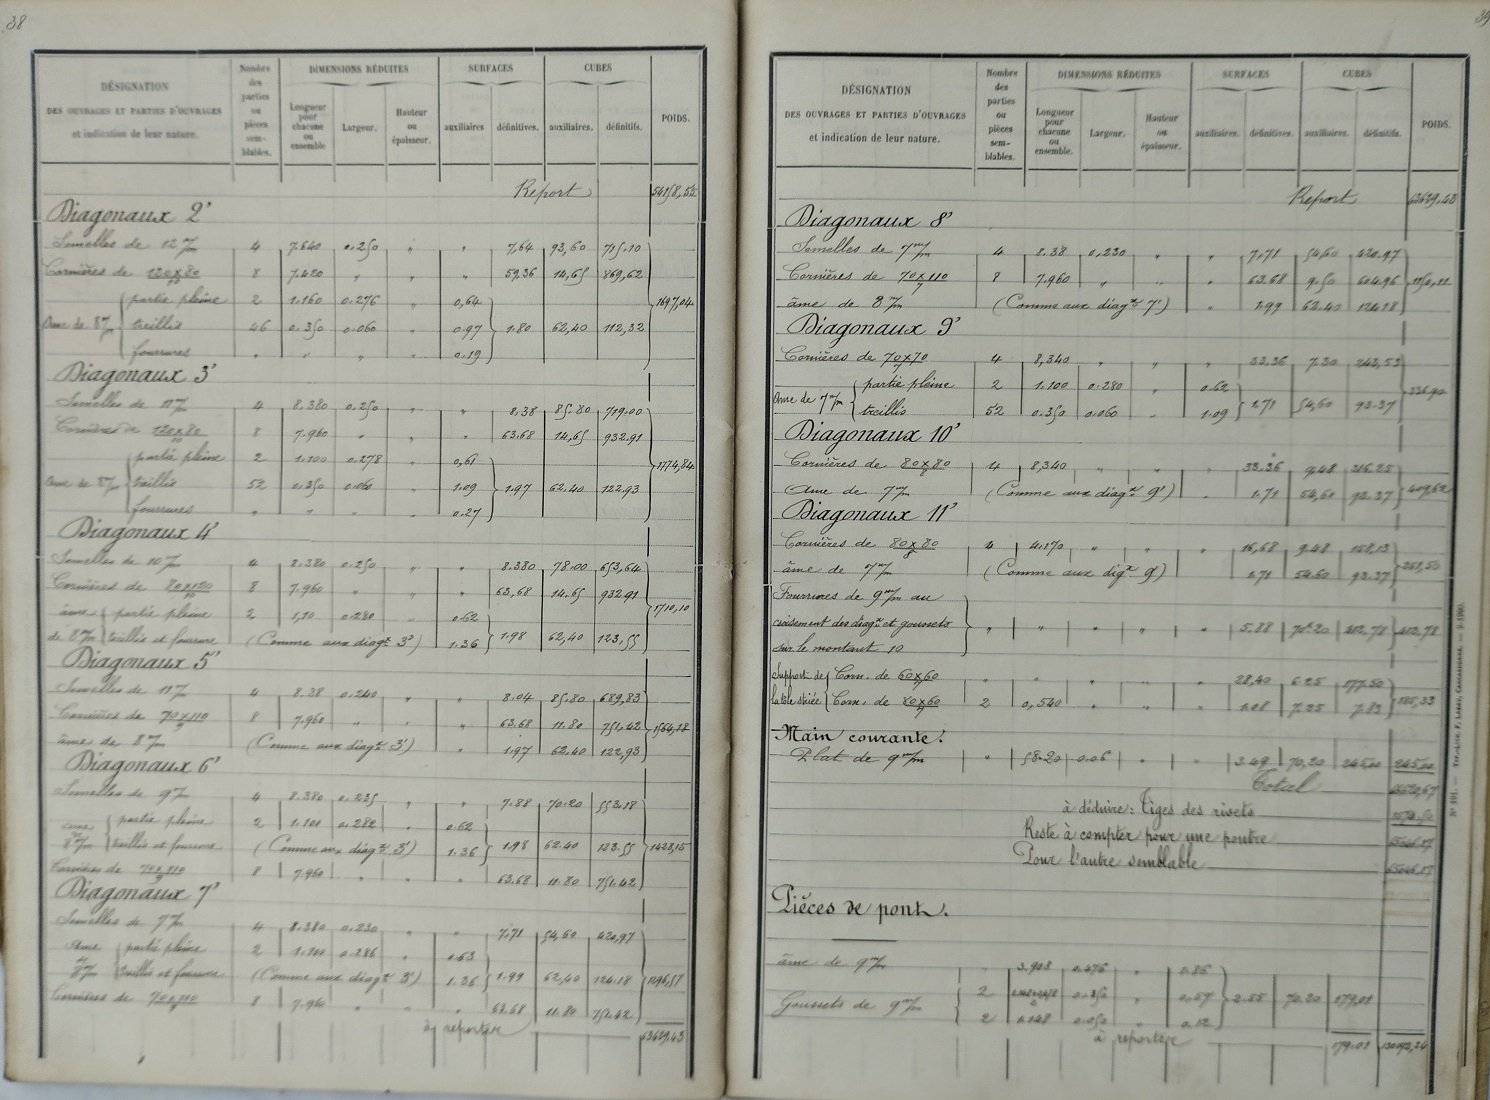 38
DÉSIGNATION DES OUVRAGES ET PARTIES D'OUVRAGES et indication de leur nature.
Nombre des parties ou pièces sem-blables.
DIMENSIONS RÉDUITES
Longueur pour chacune ou ensemble
Largeur.
Hauteur ou épaisseur.
SURFACES
auxiliaires
définitives.
CUBES
auxiliaires.
définitifs.
POIDS.
Report 54158,55
Diagonaux 2'
Semelles de 12 m/m 4 7.640 0.250 " " 7,64 93,60 715.10
Cornières de 120x80/10 8 7.420 " " " 59,36 14,65 869,62
partie pleine 2 1.160 0.276 " 0,64
âme de 8 m/m treillis 46 0.350 0.060 " 0.97 1.80 62,40 112,32 1697,04
fourrures " " " " 0.19
Diagonaux 3'
Semelles de 11 m/m 4 8.380 0.250 " " 8,38 85.80 719.00
Cornières de 120x80/10 8 7.960 " " " 63.68 14,65 932.91
partie pleine 2 1.100 0.278 " 0,61 1774,84
âme de 8 m/m treillis 52 0.350 0.060 " 1.09 1.97 62.40 122.93
fourrures " " " " 0.27
Diagonaux 4'
Semelles de 10 m/m 4 8.380 0.250 " " 8.380 78.00 653,64
Cornières de 80x120/10 8 7.960 " " " 63,68 14.65 932.91
âme partie pleine 2 1,10 0.280 " 0.62 1710,10
de 8 m/m treillis et fourrure (Comme aux diag.x 3') 1.36 1.98 62,40 123.55
Diagonaux 5'
Semelles de 11 m/m 4 8.38 0.240 " " 8.04 85.80 689,83
Cornières de 70x110/9 8 7.960 " " " 63.68 11.80 751.42 1564,18
âme de 8 m/m (Comme aux diag.x 3') " 1.97 62.40 122,93
Diagonaux 6'
Semelles de 9 m/m 4 8.380 0.235 " " 7.88 70.20 553.18
âme partie pleine 2 1.100 0.282 " 0.62
8 m/m treillis et fourrure (Comme aux diag.x 3') 1.36 1.98 62.40 123.55 1428,15
Cornières de 70x110/9 8 7.960 " " " 63.68 11.80 751.42
Diagonaux 7'
Semelles de 7 m/m 4 8.380 0.230 " " 7.71 54,60 420,97
âme partie pleine 2 1.100 0.286 " 0.63
de 8 m/m treillis et fourrure (Comme aux diag.x 3') 1.36 1.99 62,40 124.18 1296,57
Cornières de 70x110/9 8 7.960 " " " 63.68 11.80 751.42
à reporter 63629.43
39
DÉSIGNATION DES OUVRAGES ET PARTIES D'OUVRAGES et indication de leur nature.
Nombre des parties ou pièces sem-blables.
DIMENSIONS RÉDUITES
Longueur pour chacune ou ensemble.
Largeur.
Hauteur ou épaisseur.
SURFACES
auxiliaires.
définitives.
CUBES
auxiliaires.
définitifs.
POIDS.
Report 63629.43
Diagonaux 8'
Semelles de 7 m/m 4 8.38 0,230 " " 7,71 54,60 420.97
Cornières de 70x110/7 8 7.960 " " " 63.68 9.50 604.96 1150,11
âme de 8 m/m (Comme aux diag.x 7') " 1.99 62.40 124.18
Diagonaux 9'
Cornières de 70x70/7 4 8,340 " " " 33.36 7.30 243,53
partie pleine 2 1.100 0.280 " 0.62 336.90
âme de 7 m/m treillis 52 0.350 0.060 " 1.09 1.71 54,60 93.37
Diagonaux 10'
Cornières de 80x80/8 4 8,340 " " " 33.36 9,48 316.25
âme de 7 m/m (Comme aux diag.x 9') " 1.71 54,60 93.37 409,62
Diagonaux 11'
Cornières de 80x80/8 4 4.170 " " " 16,68 9.48 158,13
âme de 7 m/m (Comme aux dig.x 9') 1.71 54.60 93.37 251,50
Fourrures de 9 m/m au
croisement des diag.x et goussets " " " " " 5.88 70.20 412,78 412,78
sur le montant 10
Support de Corn. de 60x60 " " " " 28,40 6.25 177.50
la tôle striée Corn. de 2 0,540 " " " 1.08 7.25 7.83 185,33
Main courante.
Plat de 9 m/m " 58.20 0.06 " " 3.49 70,20 245.00 245.00
Total
à déduire: Tiges des rivets
Reste à compter pour une poutre
Pour l'autre semblable
Pièces de pont.
âme de 9 m/m 3.908 0.476 " 1.86
Goussets de 9 m/m 2 0.350 " 0.57 2.55 70.20 179,01
2 1.148 0.050 " 0.12
à reporter 179.01